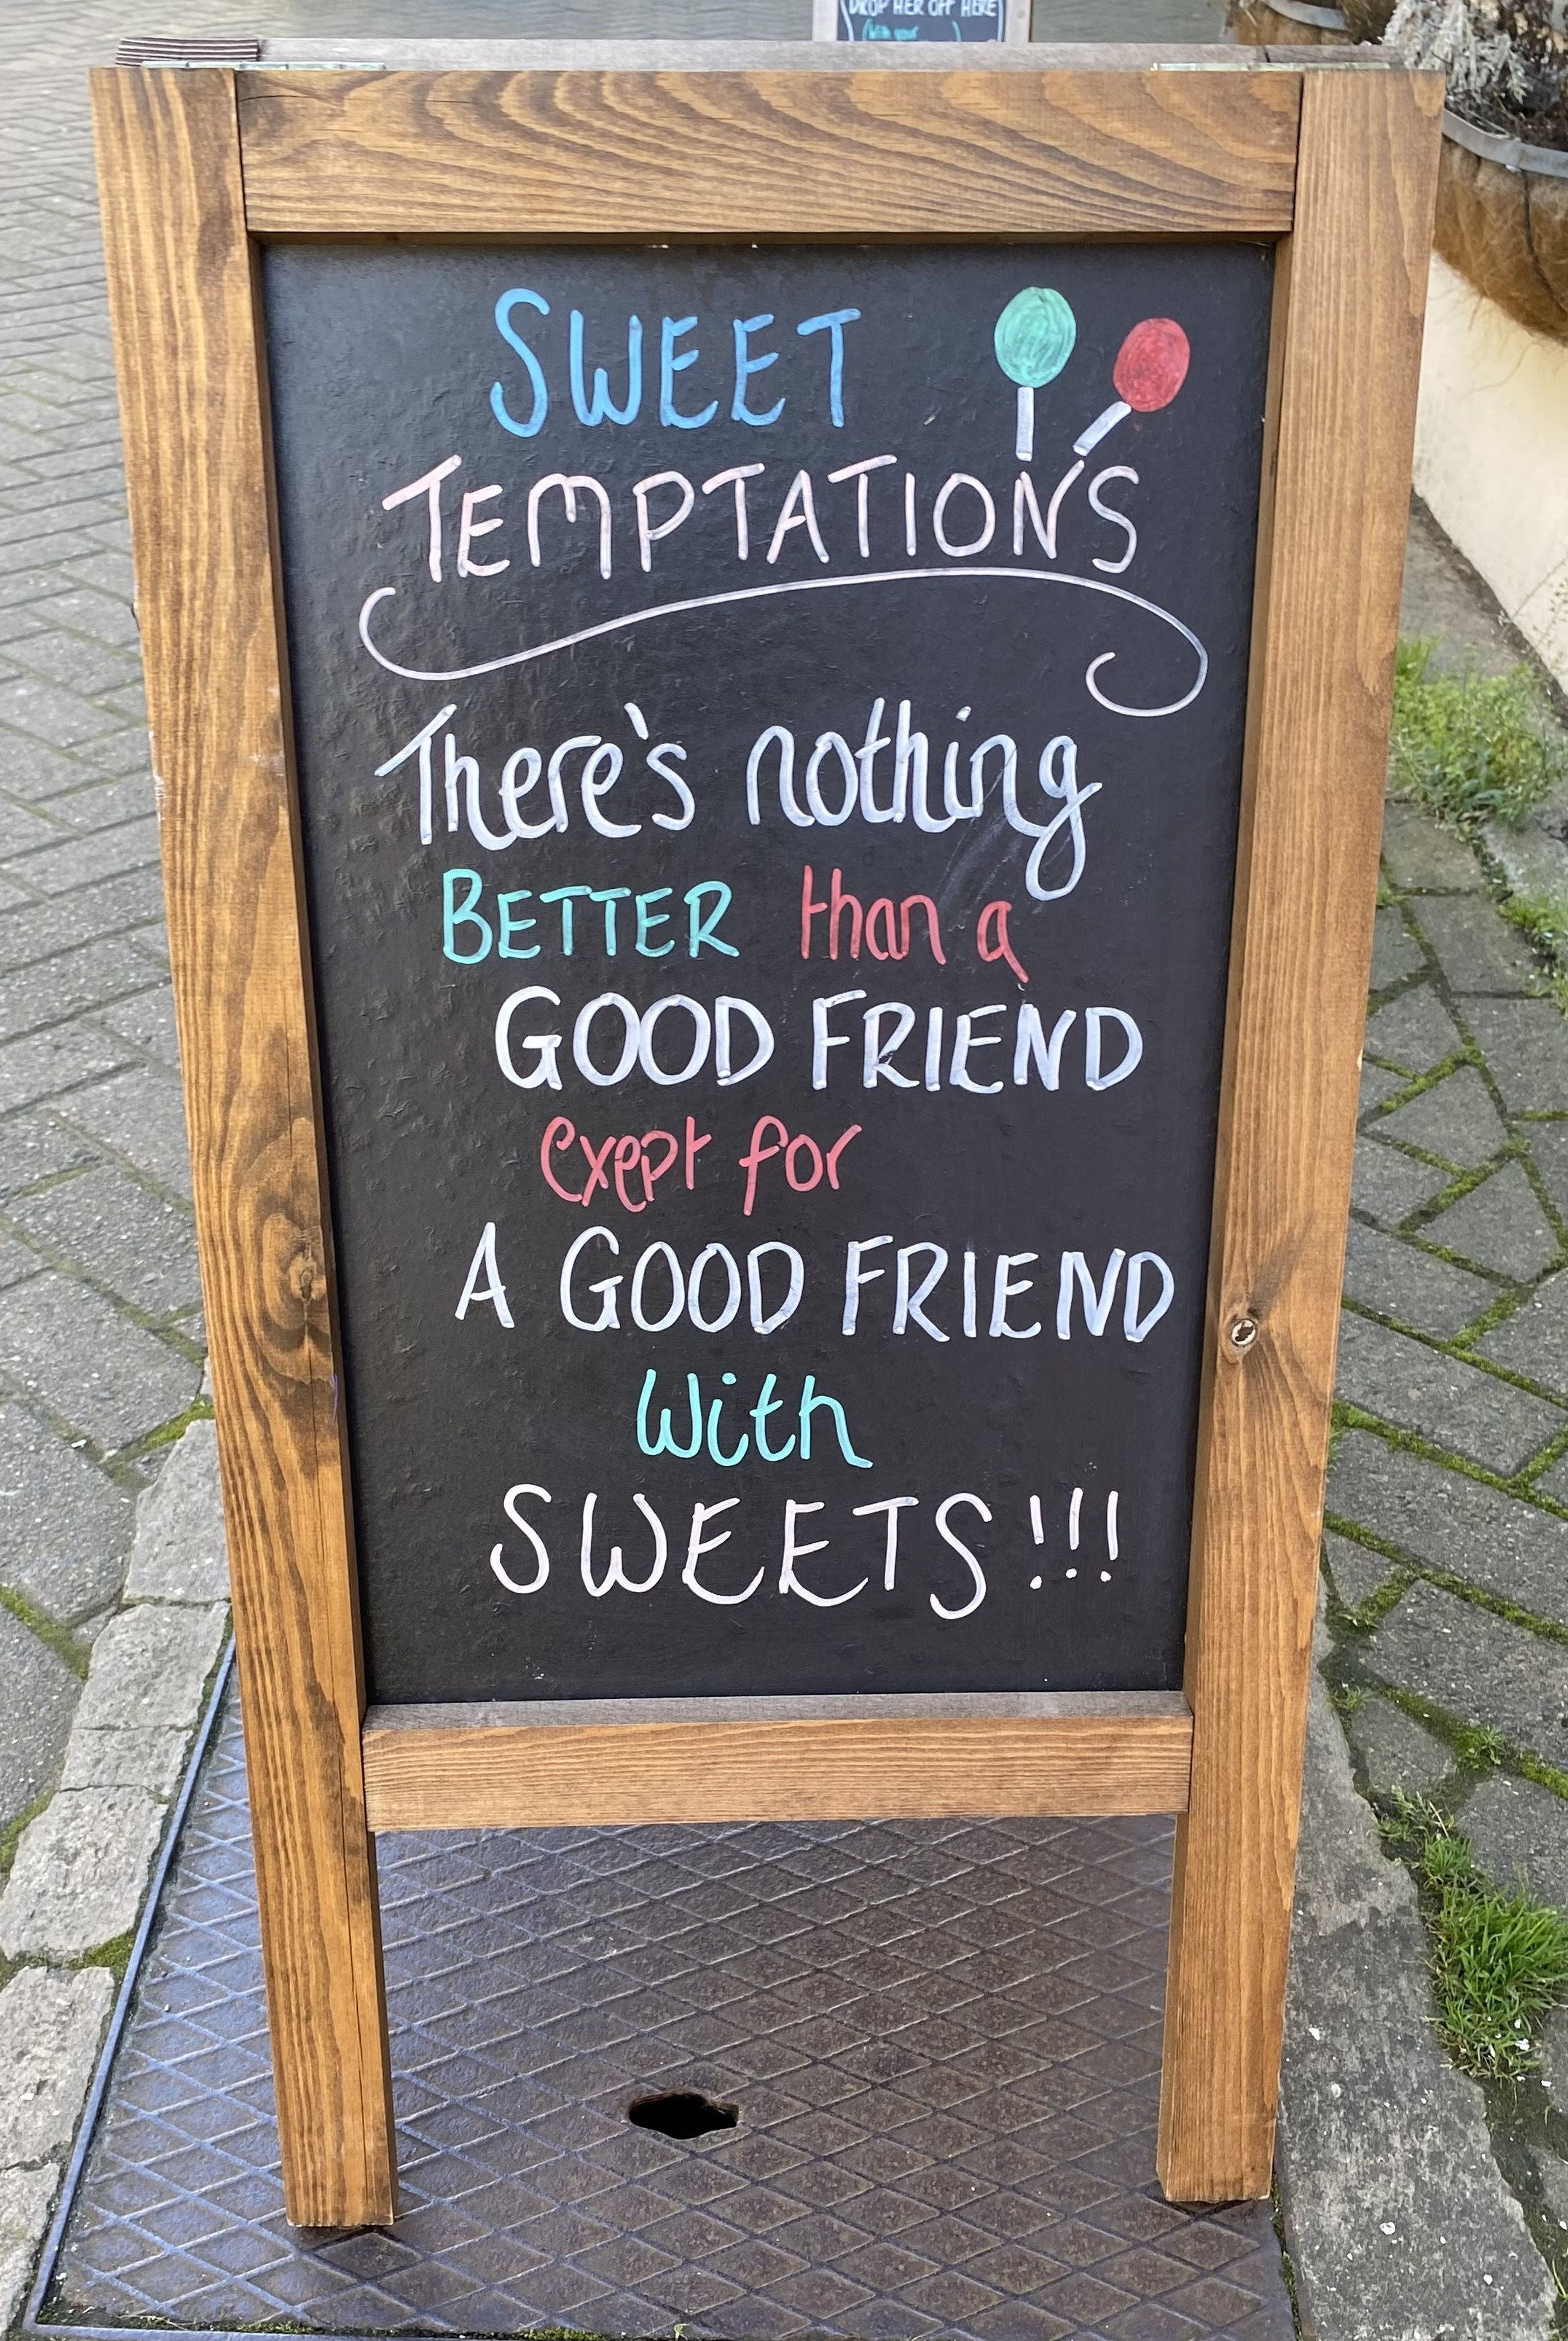 DROP HER OFF HERE
(with your
SWEET
TEMPTATIONS
There's nothing
BETTER than a
GOOD FRIEND
exept for
A GOOD FRIEND
With
SWEETS!!!